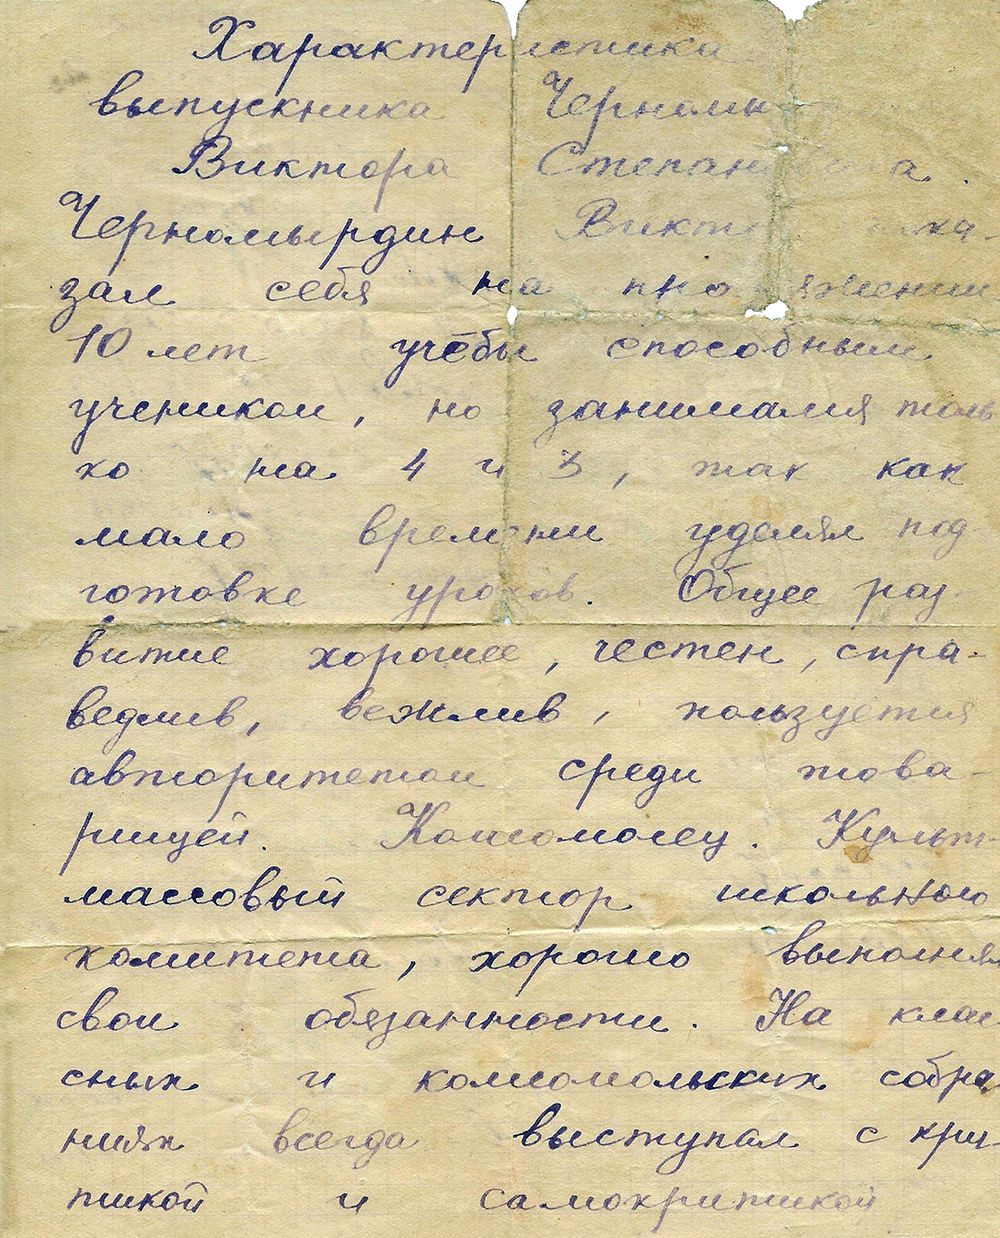 Характеристика
выпускника Черномы
Виктора Степановича.
Черномырдин Виктор пока-
зал себя на протяжении
10 лет учёбы способным
учеником, но занимался толь
ко на 4 и 3, так как
мало времени уделял под
готовке уроков. Общее раз-
витие хорошее, честен, спра-
ведлив, вежлив, пользуется
авторитетом среди това-
рищей. Комсомолец. Культ-
массовый сектор школьного
комитета, хорошо выполнял
свои обязанности. На клас
сных и комсомольских собра
ниях всегда выступал с кри-
тикой и самокритикой